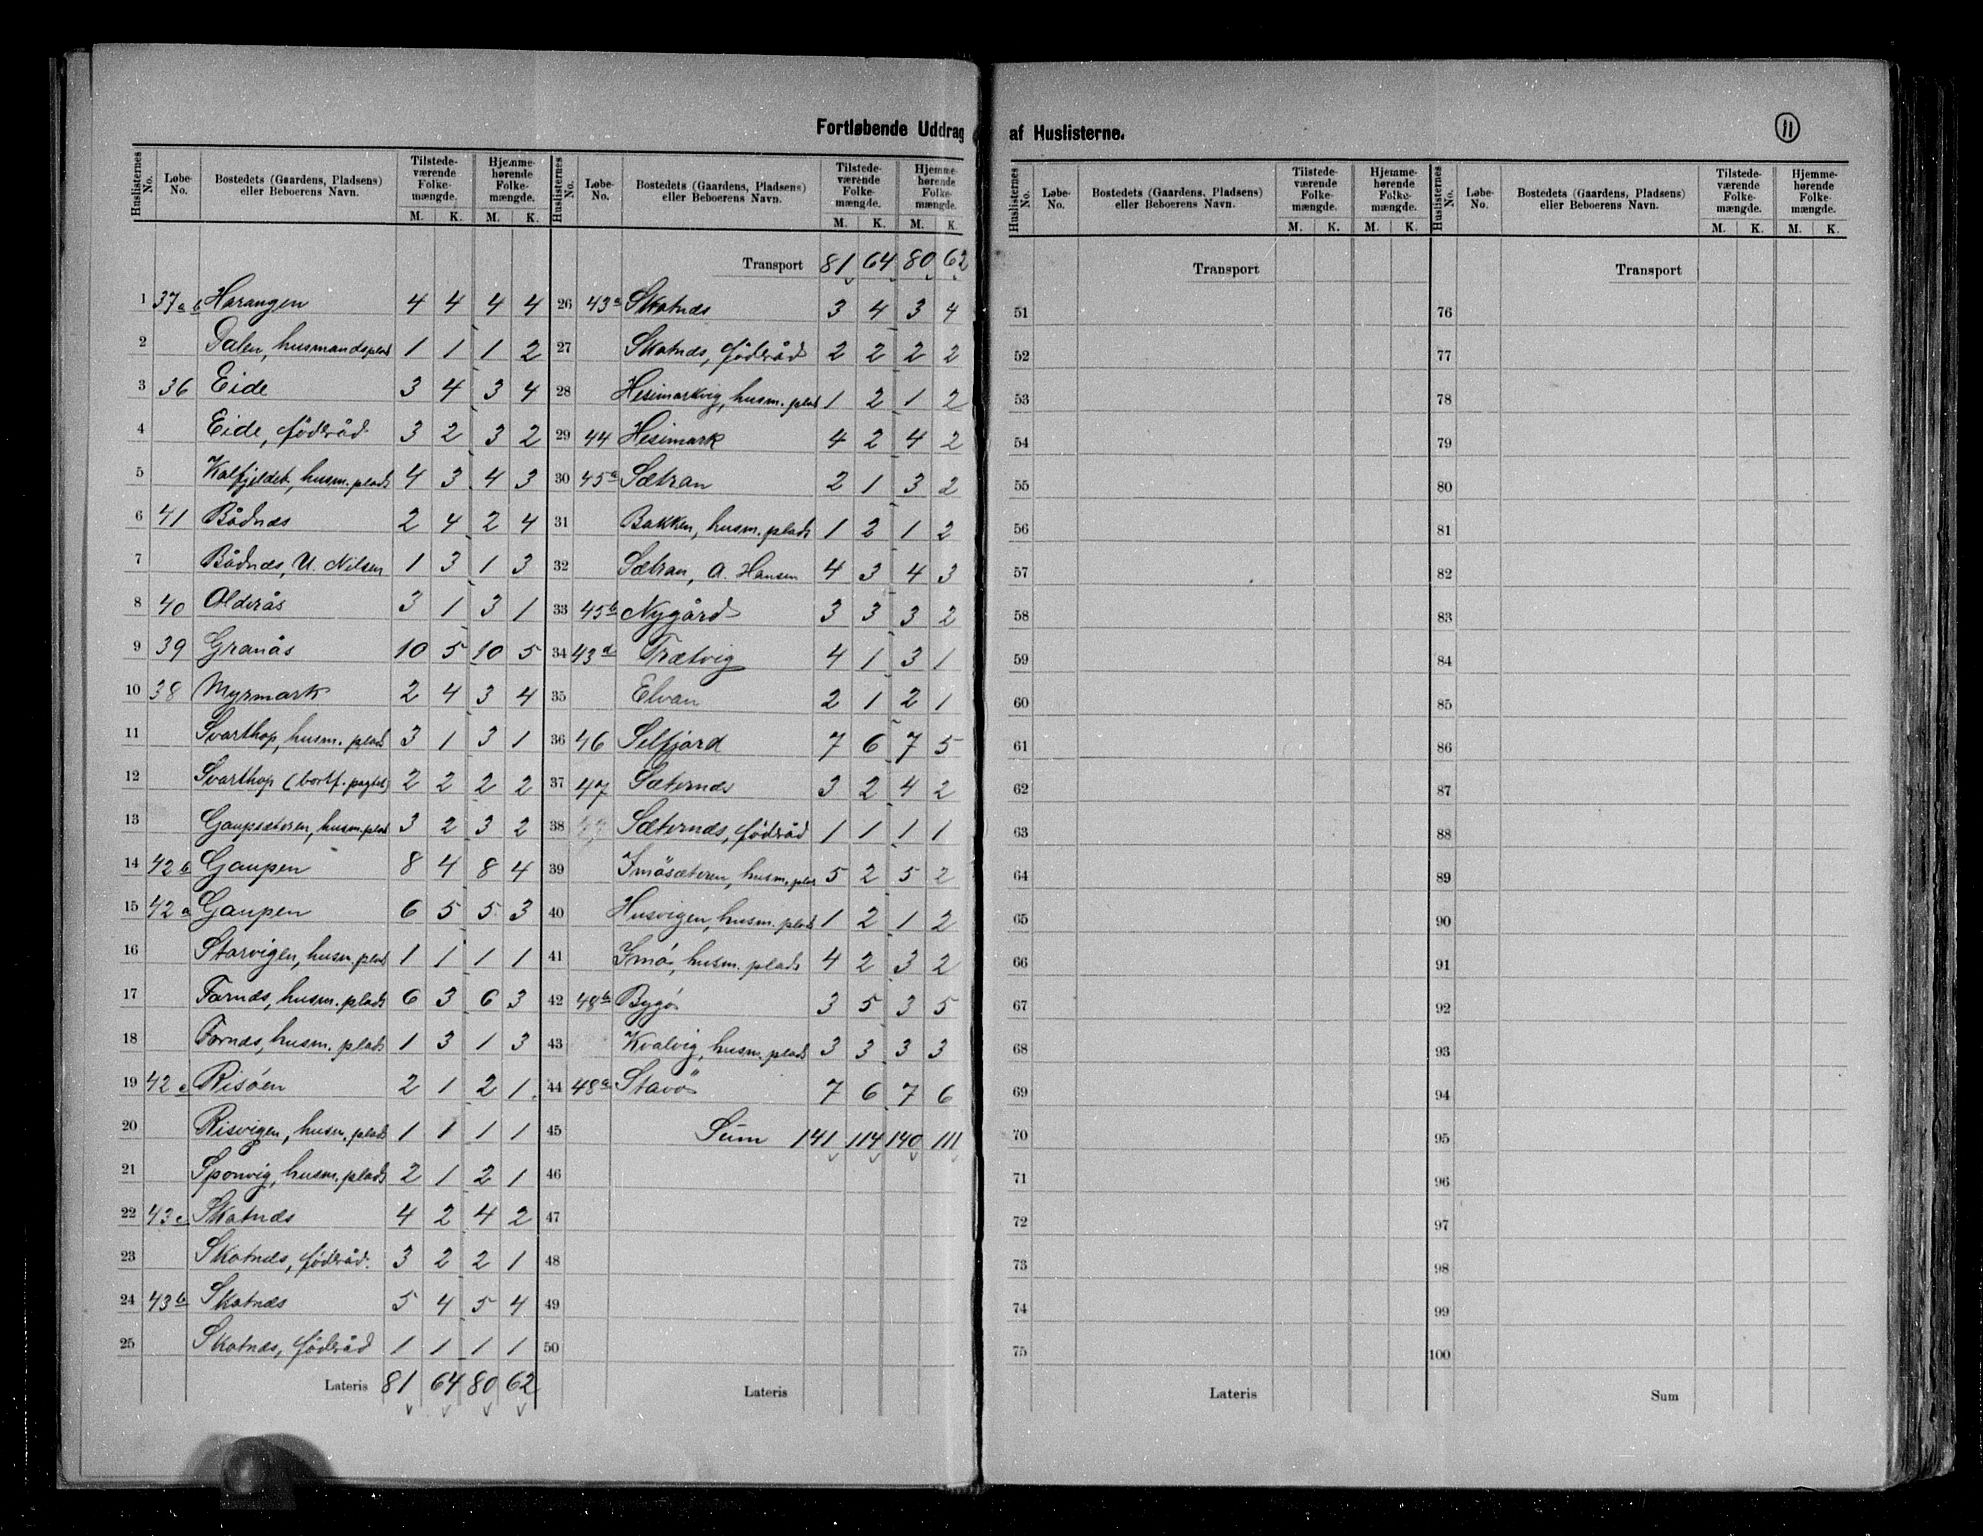 Fortløbende Uddrag af Huslisterne.
11
Huslisternes No. | Løbe-No. | Bostedets (Gaardens, Pladsens) eller Beboerens Navn. | Tilstede-værende Folke-mængde. M. K. | Hjemme-hørende Folke-mængde. M. K.
1 37a b Harangen 4 4 4 4
2 Dalen, husmandsplads 1 1 1 2
3 36 Eide 3 4 3 4
4 Eide, föderåd 3 2 3 2
5 Kalfjeldet, husm. plads 4 3 4 3
6 41 Bådnæs 2 4 2 4
7 Bådnæs, U. Nilsen 1 3 1 3
8 40 Olderås 3 1 3 1
9 39 Granås 10 5 10 5
10 38 Myrmark 2 4 3 4
11 Svarthop, husm. plads 3 1 3 1
12 Svarthop (bortf. pagtet) 2 2 2 2
13 Gaupsæteren, husm. plad 3 2 3 2
14 42b Gaupen 8 4 8 4
15 42a Gaupen 6 5 5 3
16 Starvigen, husm. plad 1 1 1 1
17 Farnæs, husm. plads 6 3 6 3
18 Farnæs, husm. plads 1 3 1 3
19 42c Risöen 2 1 2 1
20 Risvigen, husm. plads 1 1 1 1
21 Sponvig, husm. plads 2 1 2 1
22 43c Skatnæs 4 2 4 2
23 Skatnæs, föderåd. 3 2 2 1
24 43b Skatnæs 5 4 5 4
25 Skatnæs, föderåd 1 1 1 1
Lateris 81 64 80 62
Huslisternes No. | Løbe-No. | Bostedets (Gaardens, Pladsens) eller Beboerens Navn. | Tilstede-værende Folke-mængde. M. K. | Hjemme-hørende Folke-mængde. M. K.
Transport 81 64 80 62
26 43a Skatnæs 3 4 3 4
27 Skatnæs, föderåd 2 2 2 2
28 Hesimarkvig, husm. plad 1 2 1 2
29 44 Hesimark 4 2 4 2
30 45a Sætran 2 1 3 2
31 Bakken, husm. plads 1 2 1 2
32 Sætran, A. Hansen 4 3 4 3
33 45b Nygård 3 3 3 2
34 43d Trætvig 4 1 3 1
35 Elvan 2 1 2 1
36 46 Selfjord 7 6 7 5
37 47 Sæternæs 3 2 4 2
38 Sæternæs, föderåd 1 1 1 1
39 Imösæteren, husm. plad 5 2 5 2
40 Husvigen, husm. plads 1 2 1 2
41 Imö, husm. plads 4 2 3 2
42 48b Bygö 3 5 3 5
43 Kvalvig, husm. plads 3 3 3 3
44 48a Stavö 7 6 7 6
45 Sum 141 114 140 111
46
47
48
49
50
Lateris
Huslisternes No. | Løbe-No. | Bostedets (Gaardens, Pladsens) eller Beboerens Navn. | Tilstede-værende Folke-mængde. M. K. | Hjemme-hørende Folke-mængde. M. K.
Transport
51
52
53
54
55
56
57
58
59
60
61
62
63
64
65
66
67
68
69
70
71
72
73
74
75
Lateris
Huslisternes No. | Løbe-No. | Bostedets (Gaardens, Pladsens) eller Beboerens Navn. | Tilstede-værende Folke-mængde. M. K. | Hjemme-hørende Folke-mængde. M. K.
Transport
76
77
78
79
80
81
82
83
84
85
86
87
88
89
90
91
92
93
94
95
96
97
98
99
100
Sum